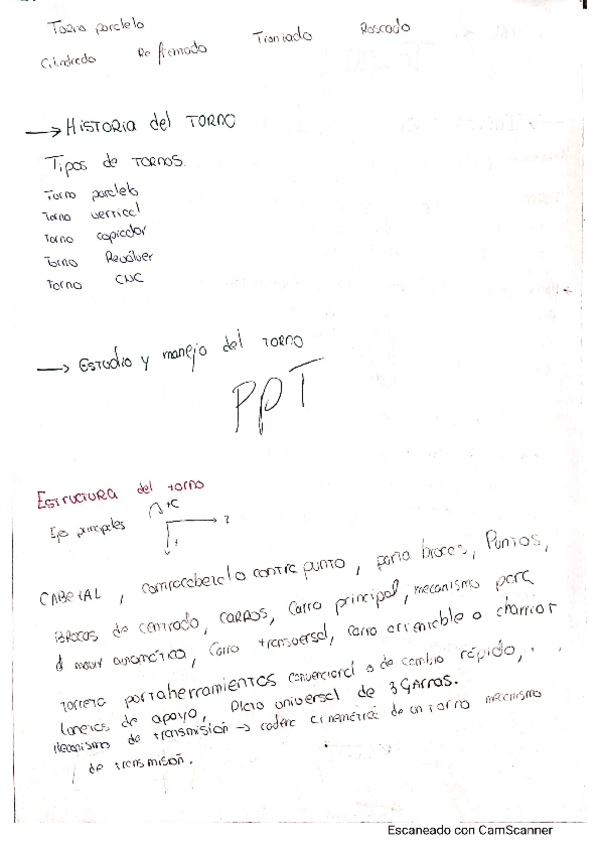 Torno paralelo
Cilindrado Refrentado Tronzado Roscado
→ HISTORIA del TORNO
Tipos de TORNOS.
Torno paralelo
Torno vertical
Torno copiador
Torno Revólver
Torno CNC
→ Estudio y manejo del TORNO
PPT
ESTRUCTURA del torno
Ejes principales +C
z
CABEZAL, contracabezal o contra punto, porta brocas, Puntos,
Brocas de centrado, CARROS, Carro principal, mecanismo para
el mov automático, Carro transversal, carro orientable o charriot
torreta portaherramientas convencional o de cambio rápido,
lunetas de apoyo, Plato universal de 3 GARRAS.
Mecanismos de transmisión → cadena cinemática de un torno mecanismo
de transmisión.
Escaneado con CamScanner